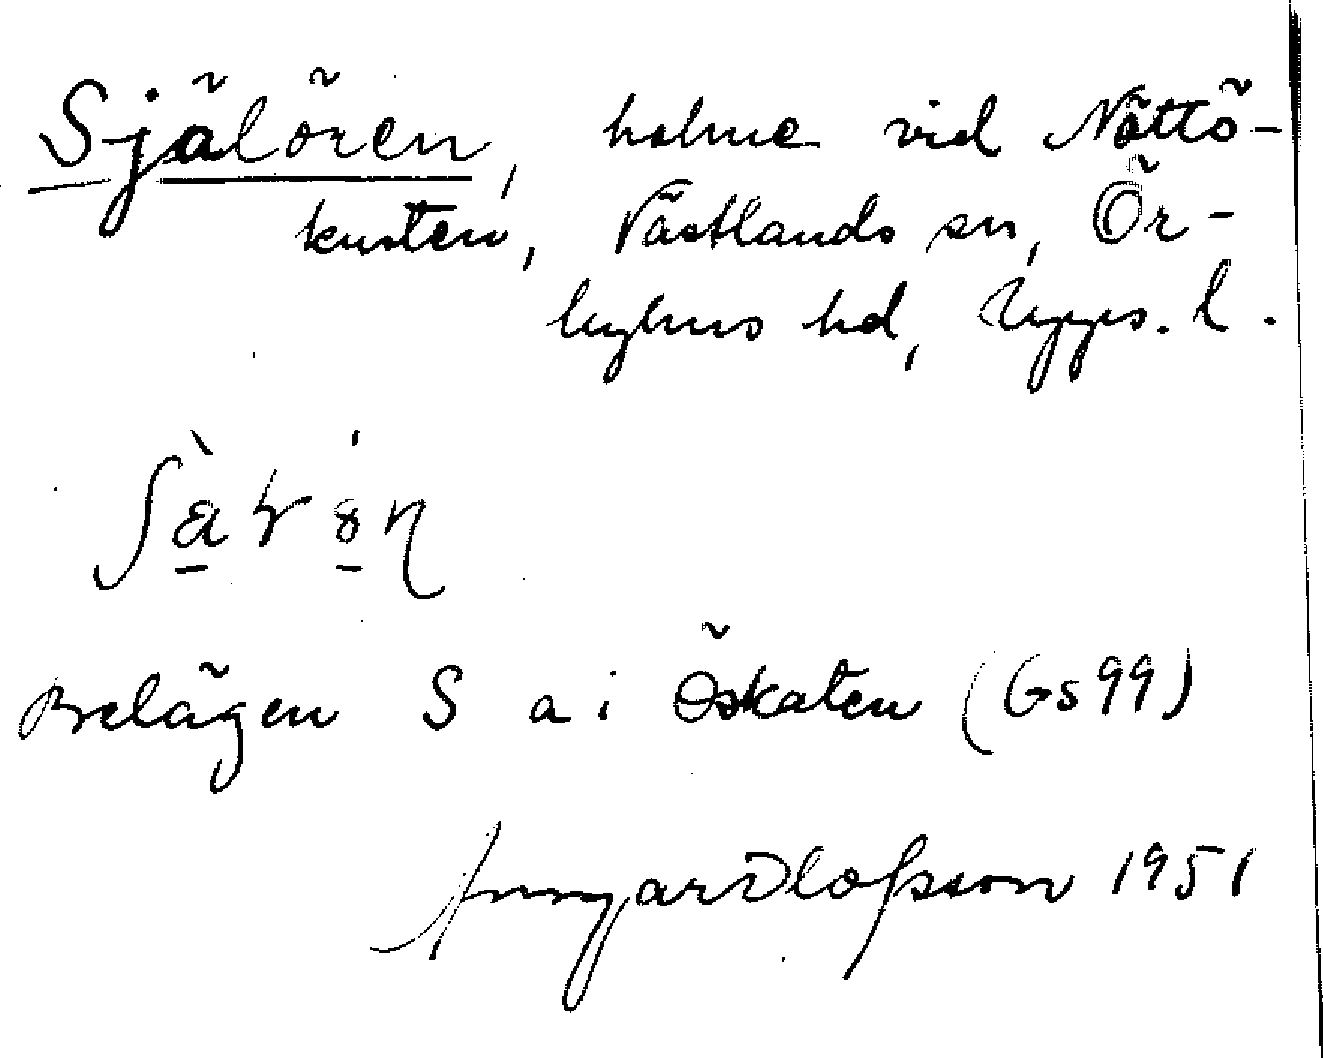 Själören, holme vid Nöttö-
kusten, Västlands sn, Ör-
byhus hd, Upps. l.
Belägen S a i Öskaten (Gs 99)
Olofsson 1951